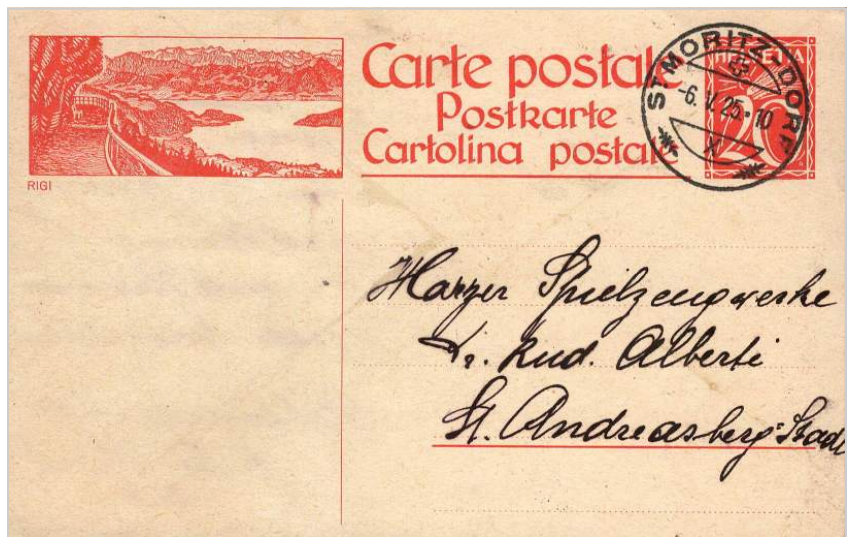 Carte postale
Postkarte
Cartolina postale
HELVETIA
20
ST. MORITZ-DORF
-6.V.25.10
X
RIGI
Harzer Spielzeugwerke
Dr. Rud. Alberti
St. Andreasberg-Stadt